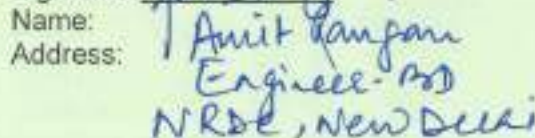 Name: Amit Rangan
Address: Engineer-BD
NRDC, New Delhi